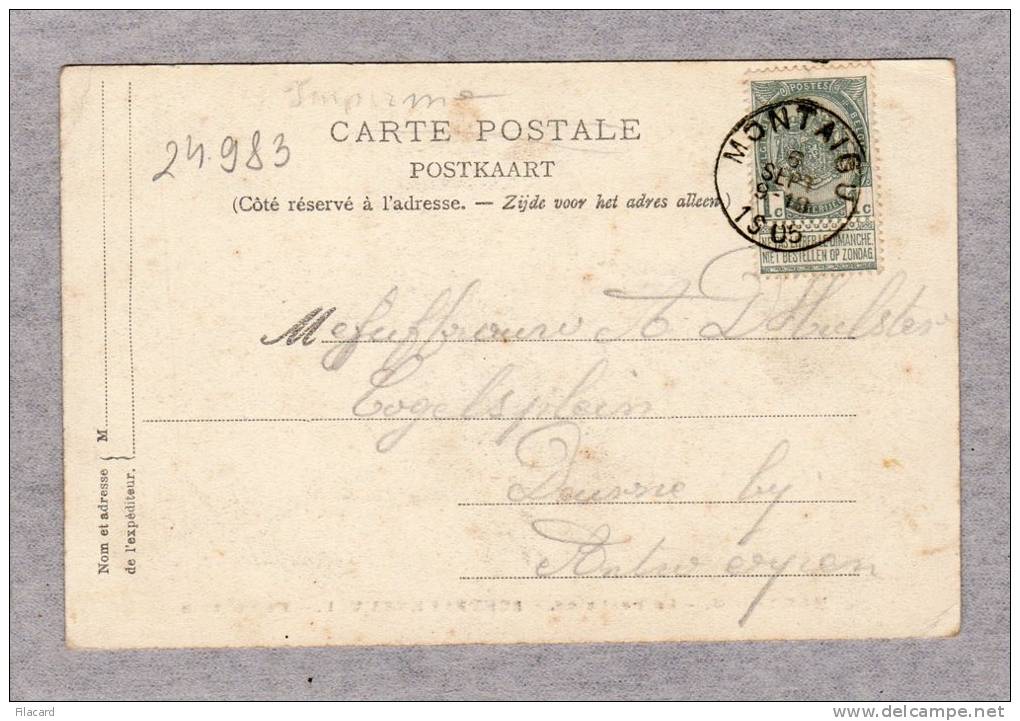 Imprimé
24.983
CARTE POSTALE
POSTKAART
(Côté réservé à l'adresse. — Zijde voor het adres alleen)
POSTES
MONTAIGU
6
SEPT
1905
1c 1c
NE PAS LIVRER LE DIMANCHE.
NIET BESTELLEN OP ZONDAG.
Mejuffrouw A. D'Hulster
Deurne bij
Antwerpen
Nom et adresse } M
de l'expéditeur.
Filacard
www.delcampe.net